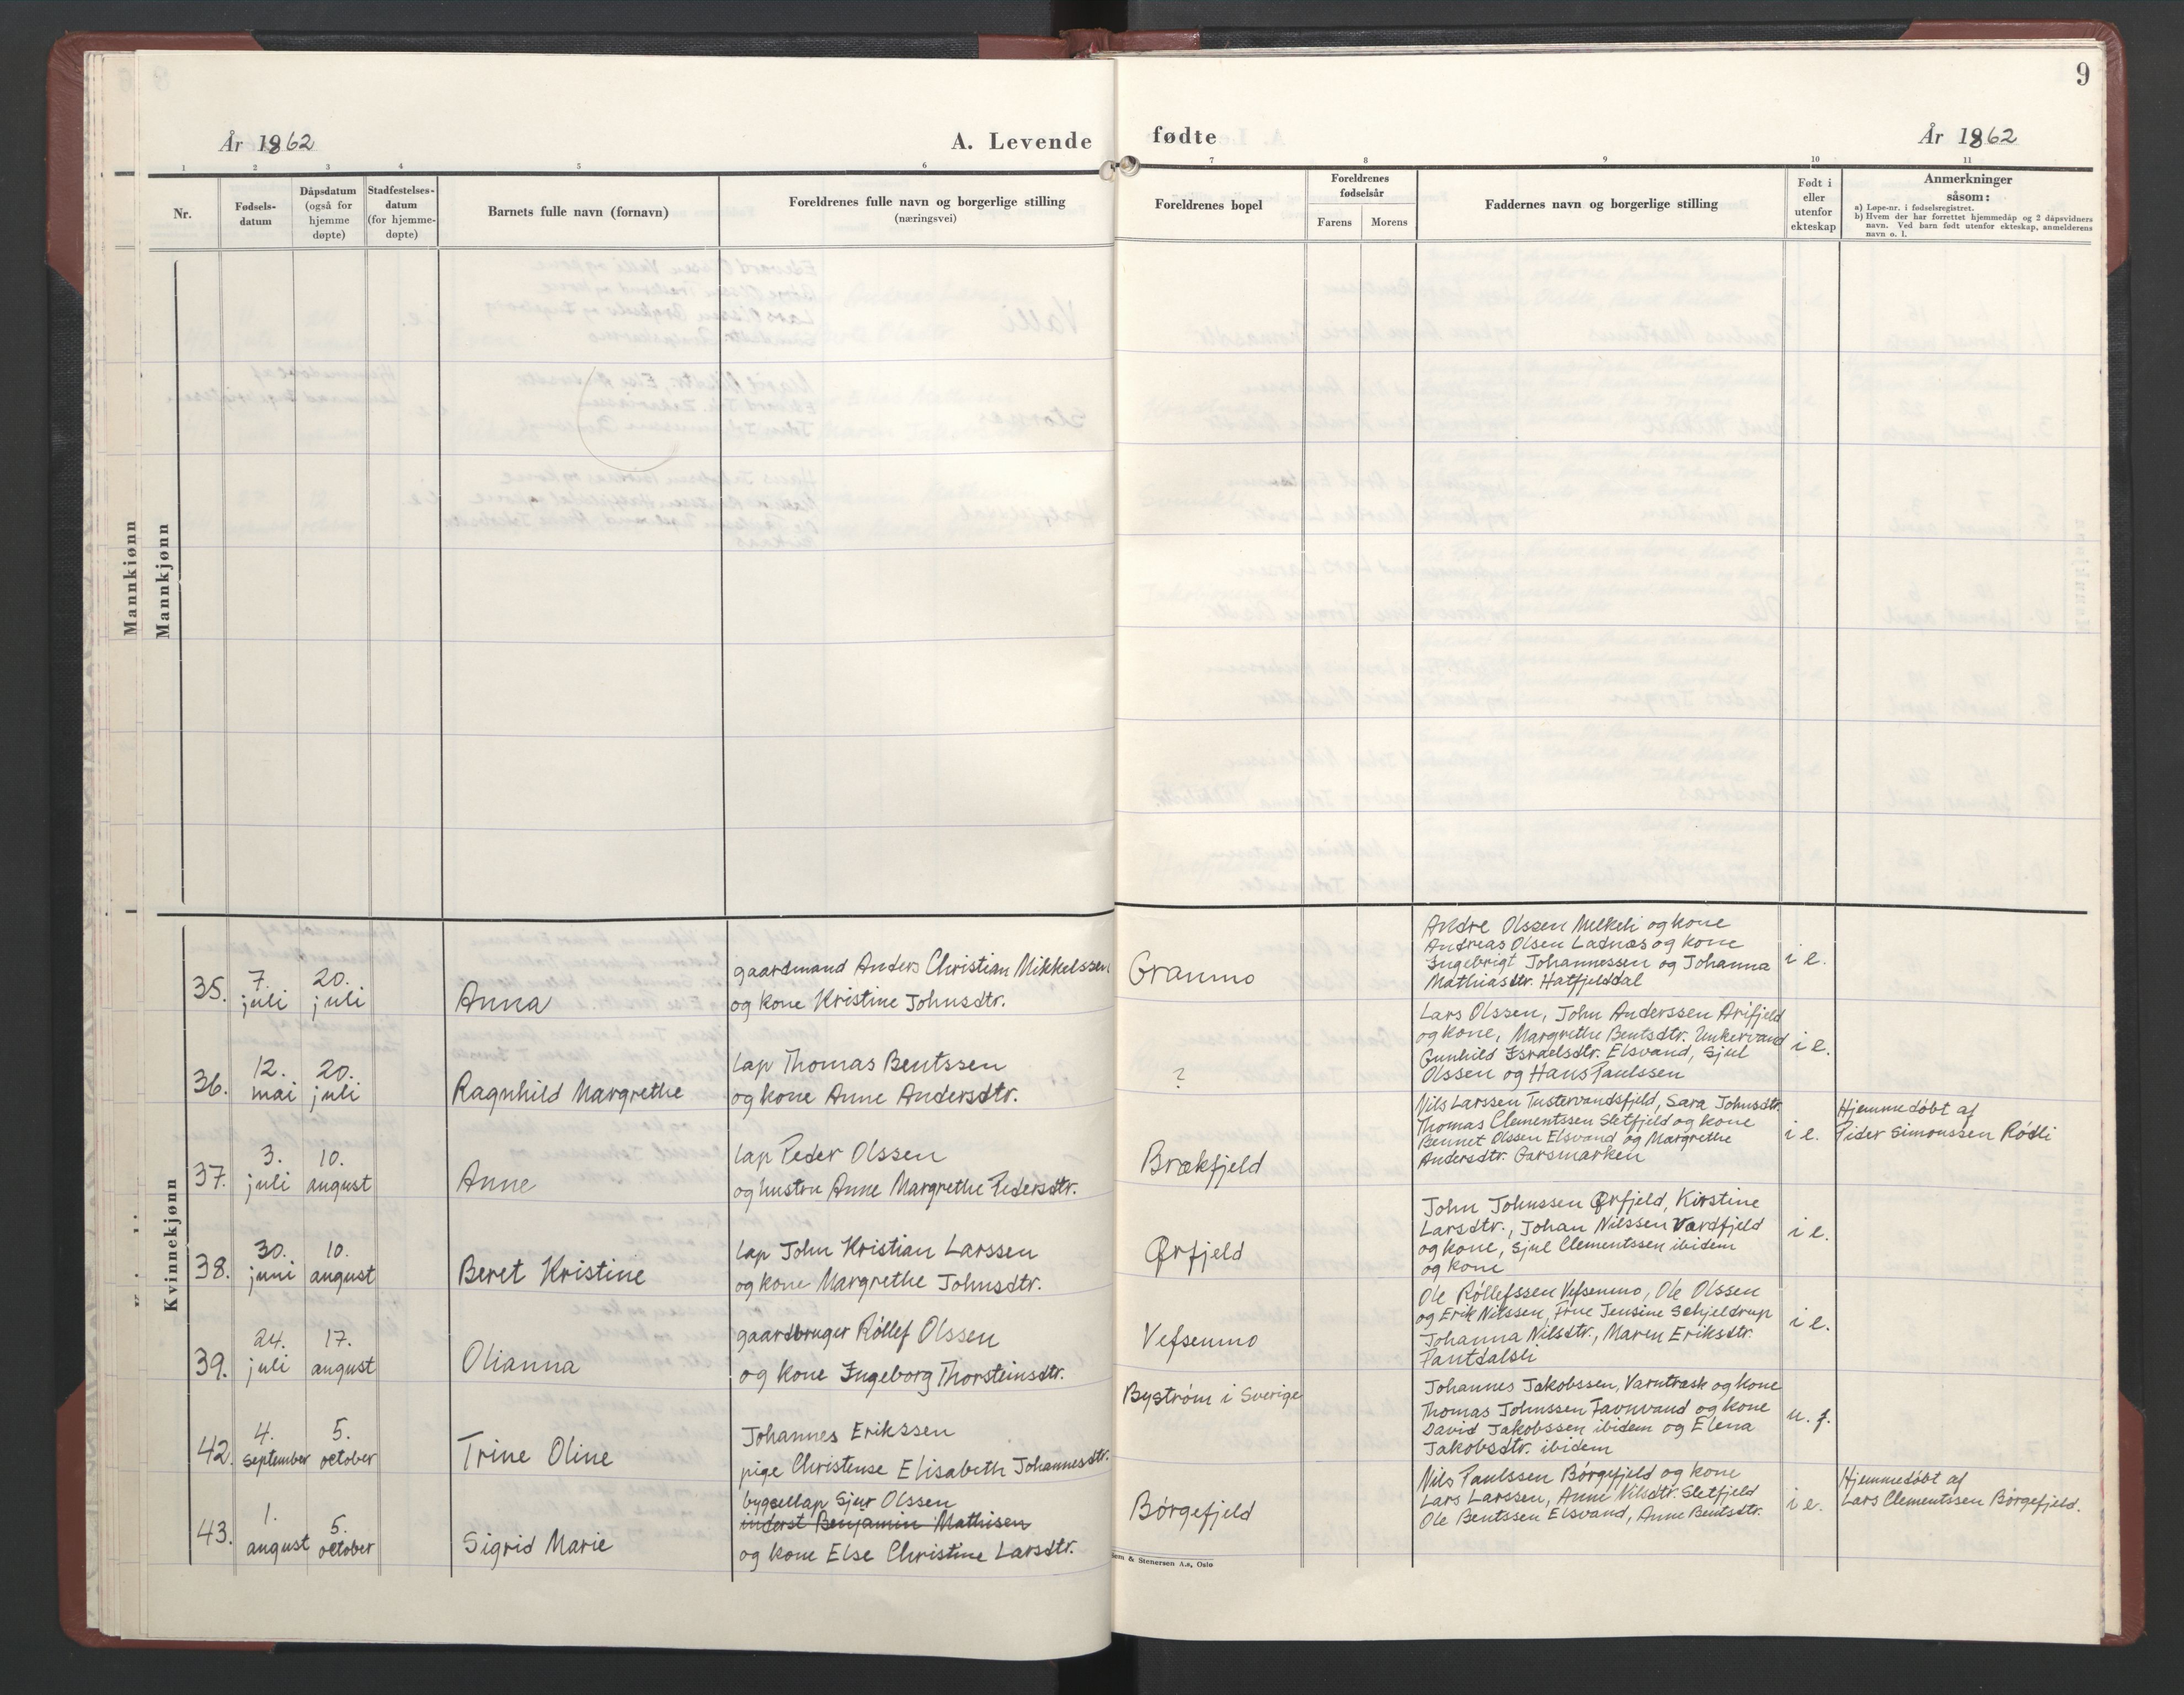 9
År 1862
A. Levende
fødte
År 1862
1 2 3 4 5 6 7 8 9 10 11
Nr.
Fødsels-
datum
Dåpsdatum
(også for
hjemme
døpte)
Stadfestelses-
datum
(for hjemme-
døpte)
Barnets fulle navn (fornavn)
Foreldrenes fulle navn og borgerlige stilling
(næringsvei)
Foreldrenes bopel
Foreldrenes
fødselsår
Farens
Morens
Faddernes navn og borgerlige stilling
Født i
eller
utenfor
ekteskap
Anmerkninger
såsom:
a) Løpe-nr. i fødselsregistret.
b) Hvem der har forrettet hjemmedåp og 2 dåpsvidners
navn. Ved barn født utenfor ekteskap, anmelderens
navn o. l.
Mannkjønn
Mannkjønn
Kvinnekjønn
35.
7.
juli
20.
juli
Anna
gaardmand Anders Christian Mikkelssen
og kone Kristine Johnsdtr.
Granmo
Andre Olssen Melkeli og kone
Andreas Olsen Ladnæs og kone
Ingebrigt Johannessen og Johanna
Mathiasdtr. Hatfjelddal
i e.
36.
12.
mai
20.
juli
Ragnhild Margrethe
lap Thomas Bentssen
og kone Anne Andersdtr.
?
Lars Olssen, John Anderssen Arifjeld
og kone, Margrethe Bentsdtr. Unkervand
Gunhild Israelsdtr. Elsvand, Sjul
Olssen og Hans Paulssen
i e.
37.
3.
juli
10.
august
Anne
lap Peder Olssen
og hustru Anne Margrethe Pedersdtr.
Brækfjeld
Nils Larssen Tustervandsfjeld, Sara Johnsdtr.
Thomas Clementssen Sletfjeld og kone
Bennet Olssen Elsvand og Margrethe
Andersdtr. Garsmarken
i e.
Hjemmedøbt af
Pider Simonssen Rødli
38.
30.
juni
10.
august
Beret Kristine
lap John Kristian Larssen
og kone Margrethe Johnsdtr.
Ørfjeld
John Johnssen Ørfjeld, Kirstine
Larsdtr., Johan Nilssen Vardfjeld
og kone, Sjul Clementssen ibidem
og kone
i e.
39.
24.
juli
17.
august
Olianna
gaardbruger Røllef Olssen
og kone Ingeborg Thorsteinsdtr.
Vefsenmo
Ole Røllefssen Vefsenmo, Ole Olssen
og Erik Nilssen, Frue Jensine Schjeldrup
Johanna Nilsdtr., Maren Eriksdtr.
Pantdalsli
i e.
42.
4.
september
5.
october
Trine Oline
Johannes Erikssen
pige Christense Elisabeth Johannesdtr.
Byström i Sverige
Johannes Jakobssen, Varntræsk og kone
Thomas Johnssen Favnvand og kone
David Jakobssen ibidem og Elena
Jakobsdtr. ibidem
u. f.
43.
1.
august
5.
october
Sigrid Marie
bygsellap Sjur Olssen
inderst Benjamin Mathisen
og kone Else Christine Larsdtr.
Børgefjeld
Nils Paulssen Børgefjeld og kone
Lars Larssen, Anne Nilsdtr. Sletfjeld
Ole Bentssen Elsvand, Anne Bentsdtr.
i e.
Hjemmedøbt af
Lars Clementssen Børgefjeld.
& Stenersen A.s, Oslo